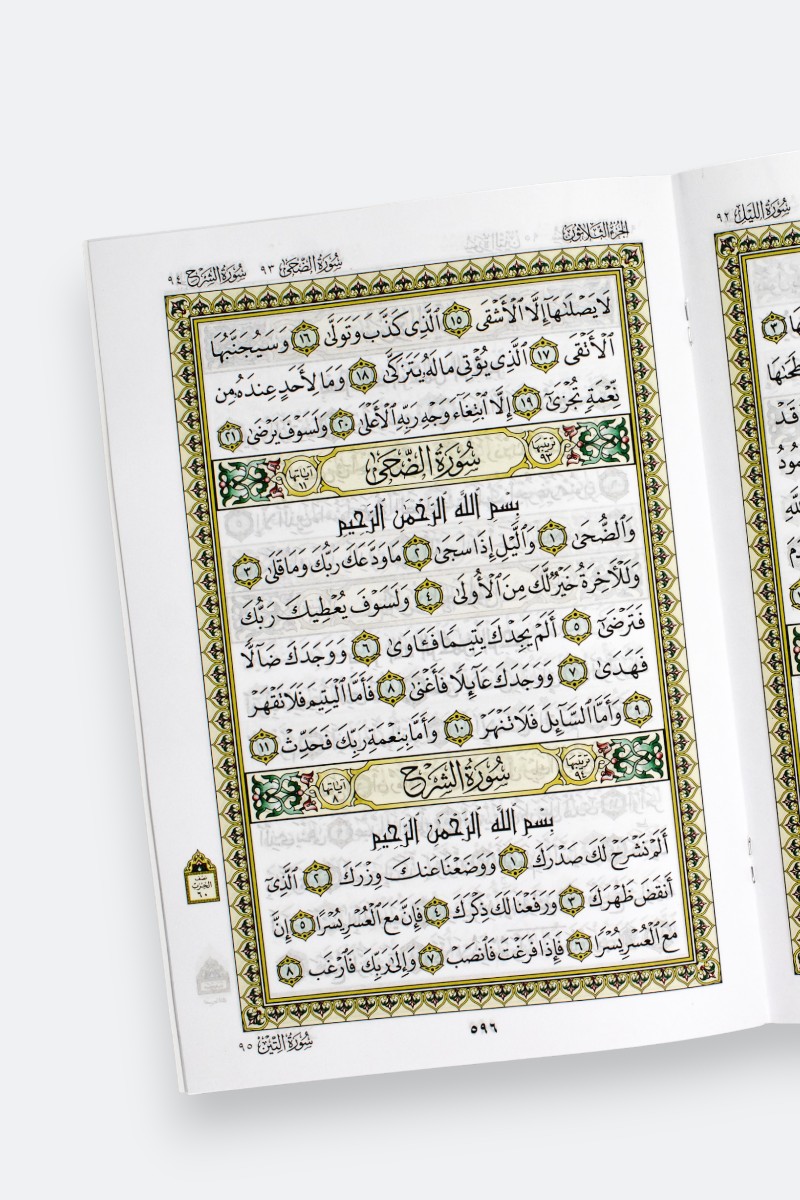 الجزء الثلاثون
سُورَةُ الضُّحَىٰ ٩٣ سُورَةُ الشَّرْحِ ٩٤
لَا يَصْلَىٰهَآ إِلَّا ٱلْأَشْقَى ١٥ ٱلَّذِى كَذَّبَ وَتَوَلَّىٰ ١٦ وَسَيُجَنَّبُهَا
ٱلْأَتْقَى ١٧ ٱلَّذِى يُؤْتِى مَالَهُۥ يَتَزَكَّىٰ ١٨ وَمَا لِأَحَدٍ عِندَهُۥ مِن
نِّعْمَةٍ تُجْزَىٰٓ ١٩ إِلَّا ٱبْتِغَآءَ وَجْهِ رَبِّهِ ٱلْأَعْلَىٰ ٢٠ وَلَسَوْفَ يَرْضَىٰ ٢١
ترتيبها ٩٣ سُورَةُ الضُّحَىٰ آياتها ١١
بِسْمِ اللَّهِ الرَّحْمَٰنِ الرَّحِيمِ
وَٱلضُّحَىٰ ١ وَٱلَّيْلِ إِذَا سَجَىٰ ٢ مَا وَدَّعَكَ رَبُّكَ وَمَا قَلَىٰ ٣
وَلَلْأَخِرَةُ خَيْرٌ لَّكَ مِنَ ٱلْأُولَىٰ ٤ وَلَسَوْفَ يُعْطِيكَ رَبُّكَ
فَتَرْضَىٰٓ ٥ أَلَمْ يَجِدْكَ يَتِيمًا فَـَٔاوَىٰ ٦ وَوَجَدَكَ ضَآلًّا
فَهَدَىٰ ٧ وَوَجَدَكَ عَآئِلًا فَأَغْنَىٰ ٨ فَأَمَّا ٱلْيَتِيمَ فَلَا تَقْهَرْ
٩ وَأَمَّا ٱلسَّآئِلَ فَلَا تَنْهَرْ ١٠ وَأَمَّا بِنِعْمَةِ رَبِّكَ فَحَدِّثْ ١١
ترتيبها ٩٤ سُورَةُ الشَّرْحِ آياتها ٨
بِسْمِ اللَّهِ الرَّحْمَٰنِ الرَّحِيمِ
أَلَمْ نَشْرَحْ لَكَ صَدْرَكَ ١ وَوَضَعْنَا عَنكَ وِزْرَكَ ٢ ٱلَّذِىٓ
أَنقَضَ ظَهْرَكَ ٣ وَرَفَعْنَا لَكَ ذِكْرَكَ ٤ فَإِنَّ مَعَ ٱلْعُسْرِ يُسْرًا ٥ إِنَّ
مَعَ ٱلْعُسْرِ يُسْرًا ٦ فَإِذَا فَرَغْتَ فَٱنصَبْ ٧ وَإِلَىٰ رَبِّكَ فَٱرْغَب ٨
نصف
الحزب
٦٠
٥٩٦
سُورَةُ التِّينِ ٩٥
سُورَةُ اللَّيْلِ ٩٢
قَدْ